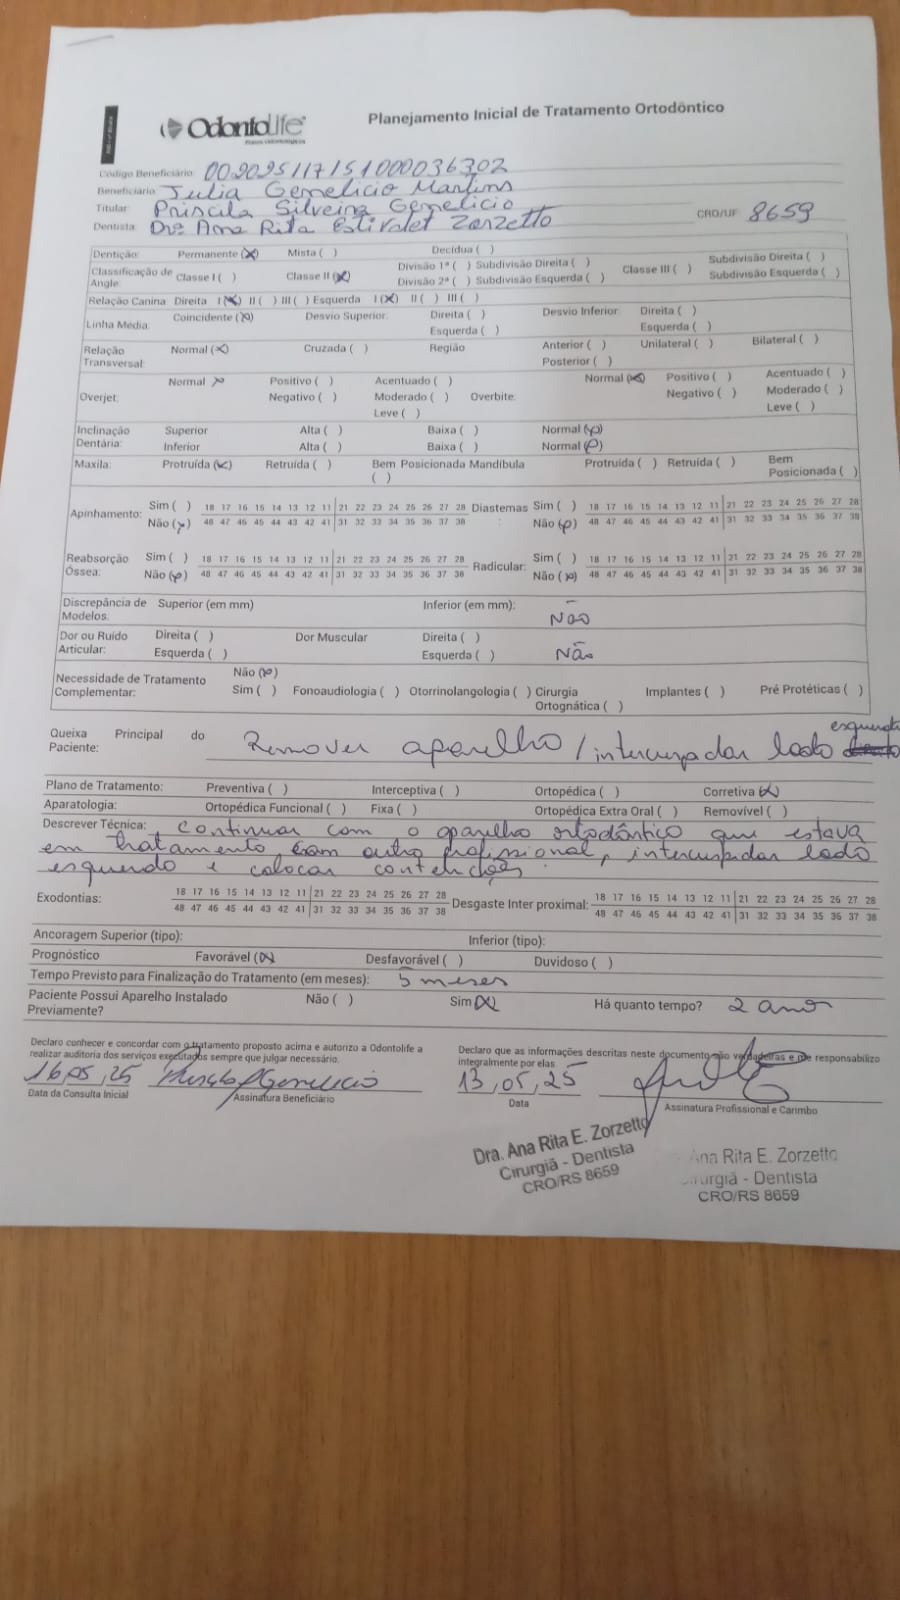 OdontoLife
Planos odontológicos
Planejamento Inicial de Tratamento Ortodôntico
Código Beneficiário: 002025117151000036302
Beneficiário: Julia Gemelicio Martins
Titular: Priscila Silveira Gemelicio
Dentista: Drª Ana Rita Estivalet Zorzetto CRO/UF 8659
Dentição: Permanente (X) Mista ( ) Decídua ( )
Classificação de Angle: Classe I ( ) Classe II (X) Divisão 1ª ( ) Subdivisão Direita ( ) Classe III ( ) Subdivisão Direita ( )
Divisão 2ª ( ) Subdivisão Esquerda ( ) Subdivisão Esquerda ( )
Relação Canina Direita I (X) II ( ) III ( ) Esquerda I (X) II ( ) III ( )
Linha Média: Coincidente (X) Desvio Superior: Direita ( ) Desvio Inferior: Direita ( )
Esquerda ( ) Esquerda ( )
Relação Transversal: Normal (X) Cruzada ( ) Região Anterior ( ) Unilateral ( ) Bilateral ( )
Posterior ( )
Overjet: Normal X Positivo ( ) Acentuado ( ) Overbite: Normal (X) Positivo ( ) Acentuado ( )
Negativo ( ) Moderado ( ) Negativo ( ) Moderado ( )
Leve ( ) Leve ( )
Inclinação Dentária: Superior Alta ( ) Baixa ( ) Normal (X)
Inferior Alta ( ) Baixa ( ) Normal (X)
Maxila: Protruída (X) Retruída ( ) Bem Posicionada ( ) Mandíbula Protruída ( ) Retruída ( ) Bem Posicionada ( )
Apinhamento: Sim ( ) 18 17 16 15 14 13 12 11 21 22 23 24 25 26 27 28 Diastemas: Sim ( ) 18 17 16 15 14 13 12 11 21 22 23 24 25 26 27 28
Não (X) 48 47 46 45 44 43 42 41 31 32 33 34 35 36 37 38 Não (X) 48 47 46 45 44 43 42 41 31 32 33 34 35 36 37 38
Reabsorção Óssea: Sim ( ) 18 17 16 15 14 13 12 11 21 22 23 24 25 26 27 28 Radicular: Sim ( ) 18 17 16 15 14 13 12 11 21 22 23 24 25 26 27 28
Não (X) 48 47 46 45 44 43 42 41 31 32 33 34 35 36 37 38 Não (X) 48 47 46 45 44 43 42 41 31 32 33 34 35 36 37 38
Discrepância de Modelos: Superior (em mm) Inferior (em mm): Não
Dor ou Ruído Articular: Direita ( ) Dor Muscular Direita ( )
Esquerda ( ) Esquerda ( ) Não
Necessidade de Tratamento Complementar: Não (X)
Sim ( ) Fonoaudiologia ( ) Otorrinolangologia ( ) Cirurgia Ortognática ( ) Implantes ( ) Pré Protéticas ( )
Queixa Principal do Paciente: Remover aparelho / intercuspidar lado esquerdo
Plano de Tratamento: Preventiva ( ) Interceptiva ( ) Ortopédica ( ) Corretiva (X)
Aparatologia: Ortopédica Funcional ( ) Fixa ( ) Ortopédica Extra Oral ( ) Removível ( )
Descrever Técnica: Continuar com o aparelho ortodôntico que estava
em tratamento com outro profissional, intercuspidar lado
esquerdo e colocar contenções
Exodontias: 18 17 16 15 14 13 12 11 21 22 23 24 25 26 27 28 Desgaste Inter proximal: 18 17 16 15 14 13 12 11 21 22 23 24 25 26 27 28
48 47 46 45 44 43 42 41 31 32 33 34 35 36 37 38 48 47 46 45 44 43 42 41 31 32 33 34 35 36 37 38
Ancoragem Superior (tipo): Inferior (tipo):
Prognóstico Favorável (X) Desfavorável ( ) Duvidoso ( )
Tempo Previsto para Finalização do Tratamento (em meses): 5 meses
Paciente Possui Aparelho Instalado Previamente? Não ( ) Sim (X) Há quanto tempo? 2 anos
Declaro conhecer e concordar com o tratamento proposto acima e autorizo a Odontolife a
realizar auditoria dos serviços executados sempre que julgar necessário.
Declaro que as informações descritas neste documento são verdadeiras e me responsabilizo
integralmente por elas.
16,05,25
Data da Consulta Inicial
Assinatura Beneficiário
13,05,25
Data
Assinatura Profissional e Carimbo
Dra. Ana Rita E. Zorzetto
Cirurgiã - Dentista
CRO/RS 8659
Ana Rita E. Zorzetto
Cirurgiã - Dentista
CRO/RS 8659